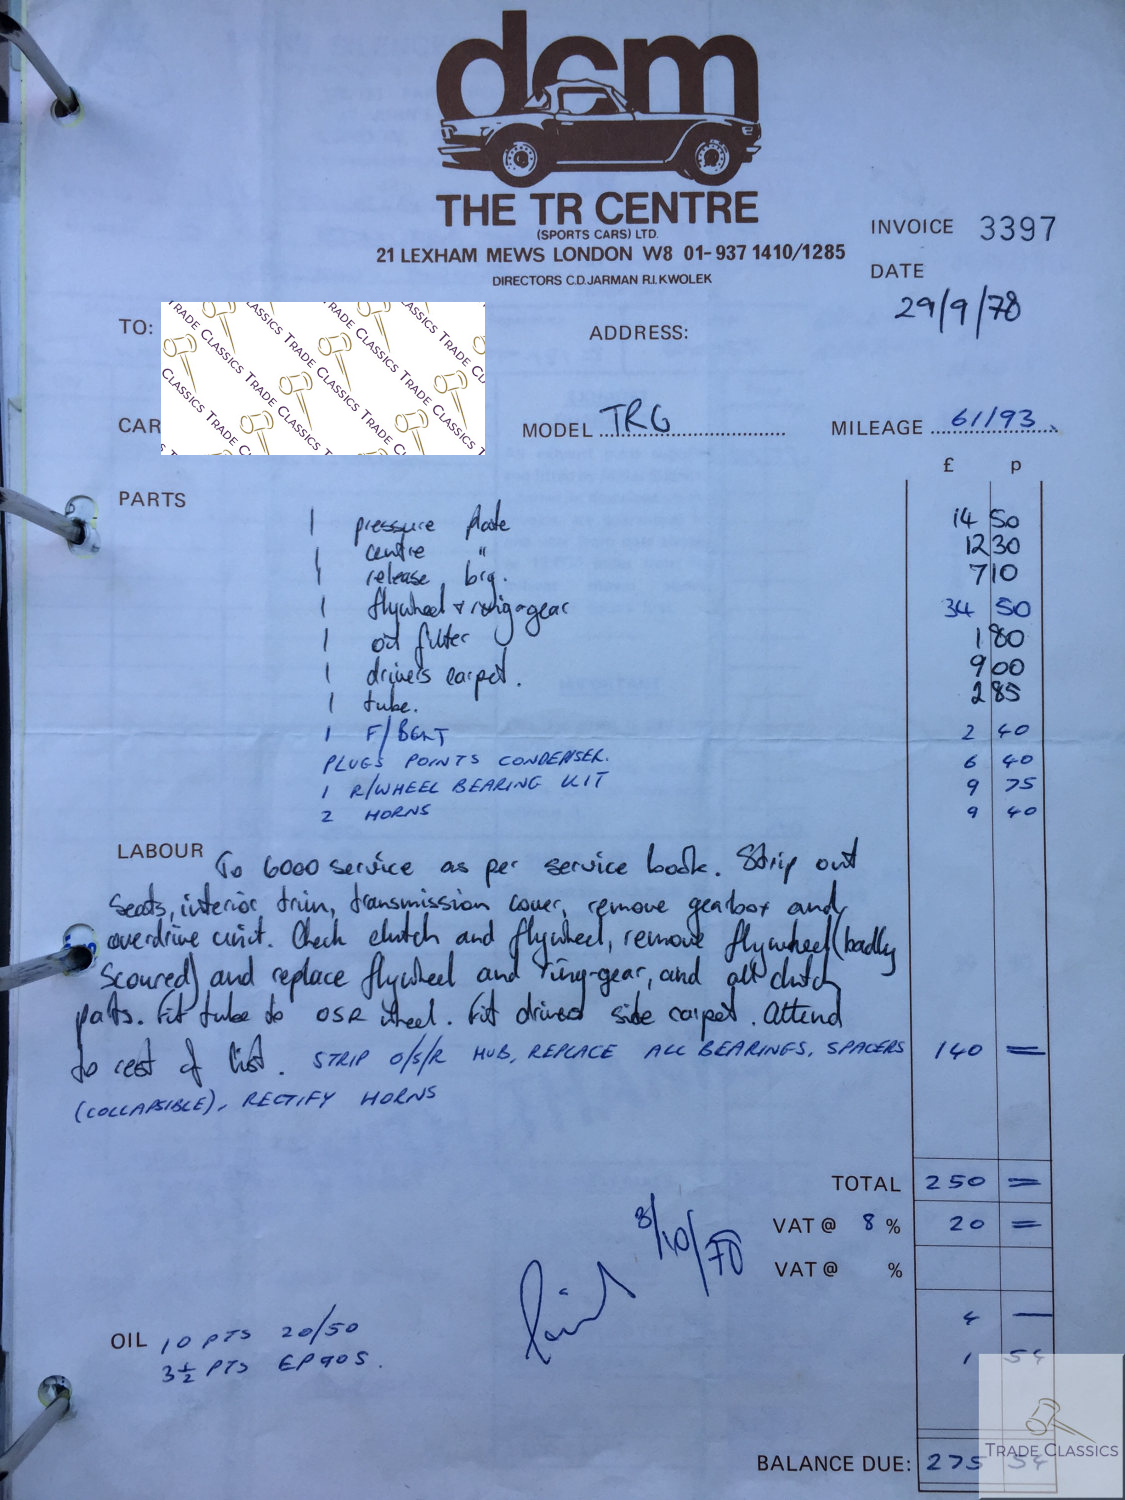 dcm
THE TR CENTRE
(SPORTS CARS) LTD.
21 LEXHAM MEWS LONDON W8 01-937 1410/1285
DIRECTORS C.D.JARMAN R.I.KWOLEK
INVOICE 3397
DATE
29/9/78
TO:
ADDRESS:
CAR
MODEL TR6
MILEAGE 61193
£ p
PARTS
1 pressure plate 14 50
1 centre " 12 30
1 release brg. 7 10
1 flywheel + ring-gear 34 50
1 oil filter 1 80
1 drivers carpet. 9 00
1 tube. 2 85
1 F/BELT 2 40
PLUGS POINTS CONDENSER. 6 40
1 R/WHEEL BEARING KIT 9 75
2 HORNS 9 40
LABOUR To 6000 service as per service book. Strip out
seats, interior trim, transmission cover, remove gearbox and
overdrive unit. Check clutch and flywheel, remove flywheel (badly
scoured) and replace flywheel and ring-gear, and all clutch
parts. Fit tube to OSR wheel. Fit drivers side carpet. Attend
to rest of list. STRIP O/S/R HUB, REPLACE ALL BEARINGS, SPACERS 140 =
(COLLAPSIBLE), RECTIFY HORNS
TOTAL 250 =
VAT @ 8 % 20 =
VAT @ %
8/10/78
OIL 10 PTS 20/50 4 —
3½ PTS EP90S. 1 54
BALANCE DUE: 275 54
TRADE CLASSICS